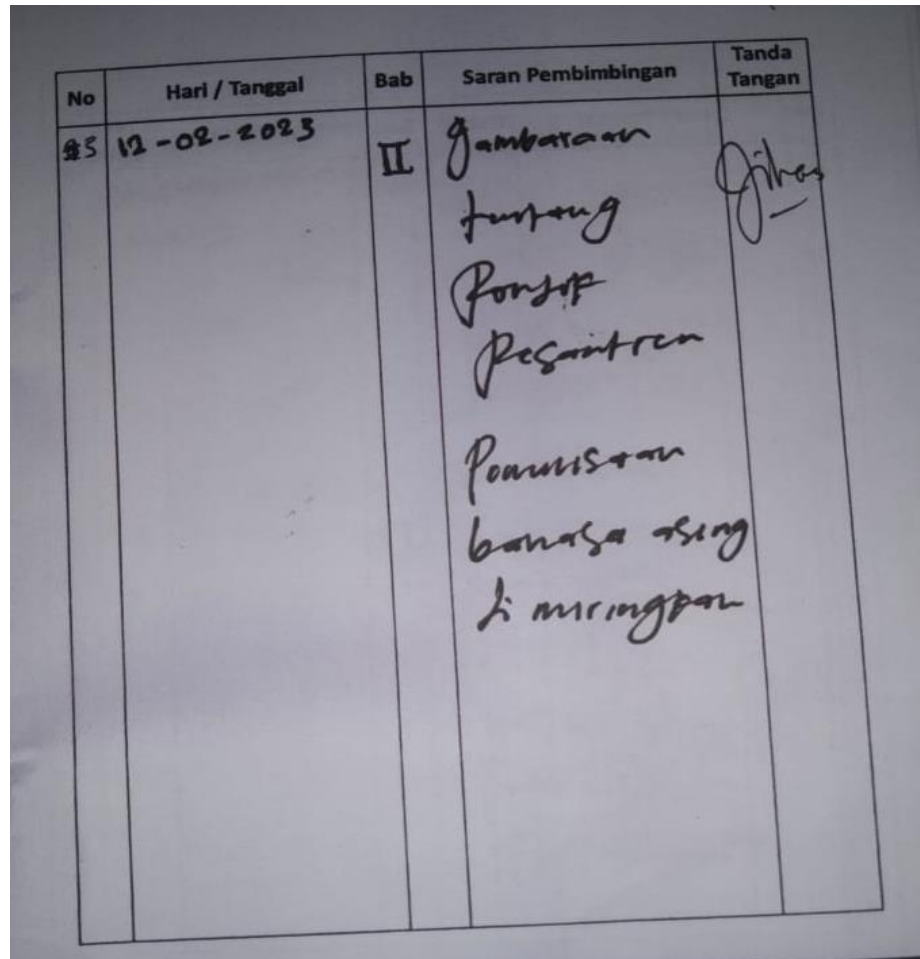 No Hari / Tanggal Bab Saran Pembimbingan Tanda Tangan
5 12-02-2023 II Gambaraan
tentang
Konsep
Pesantren
Penulisan
bahasa asing
di miringkan